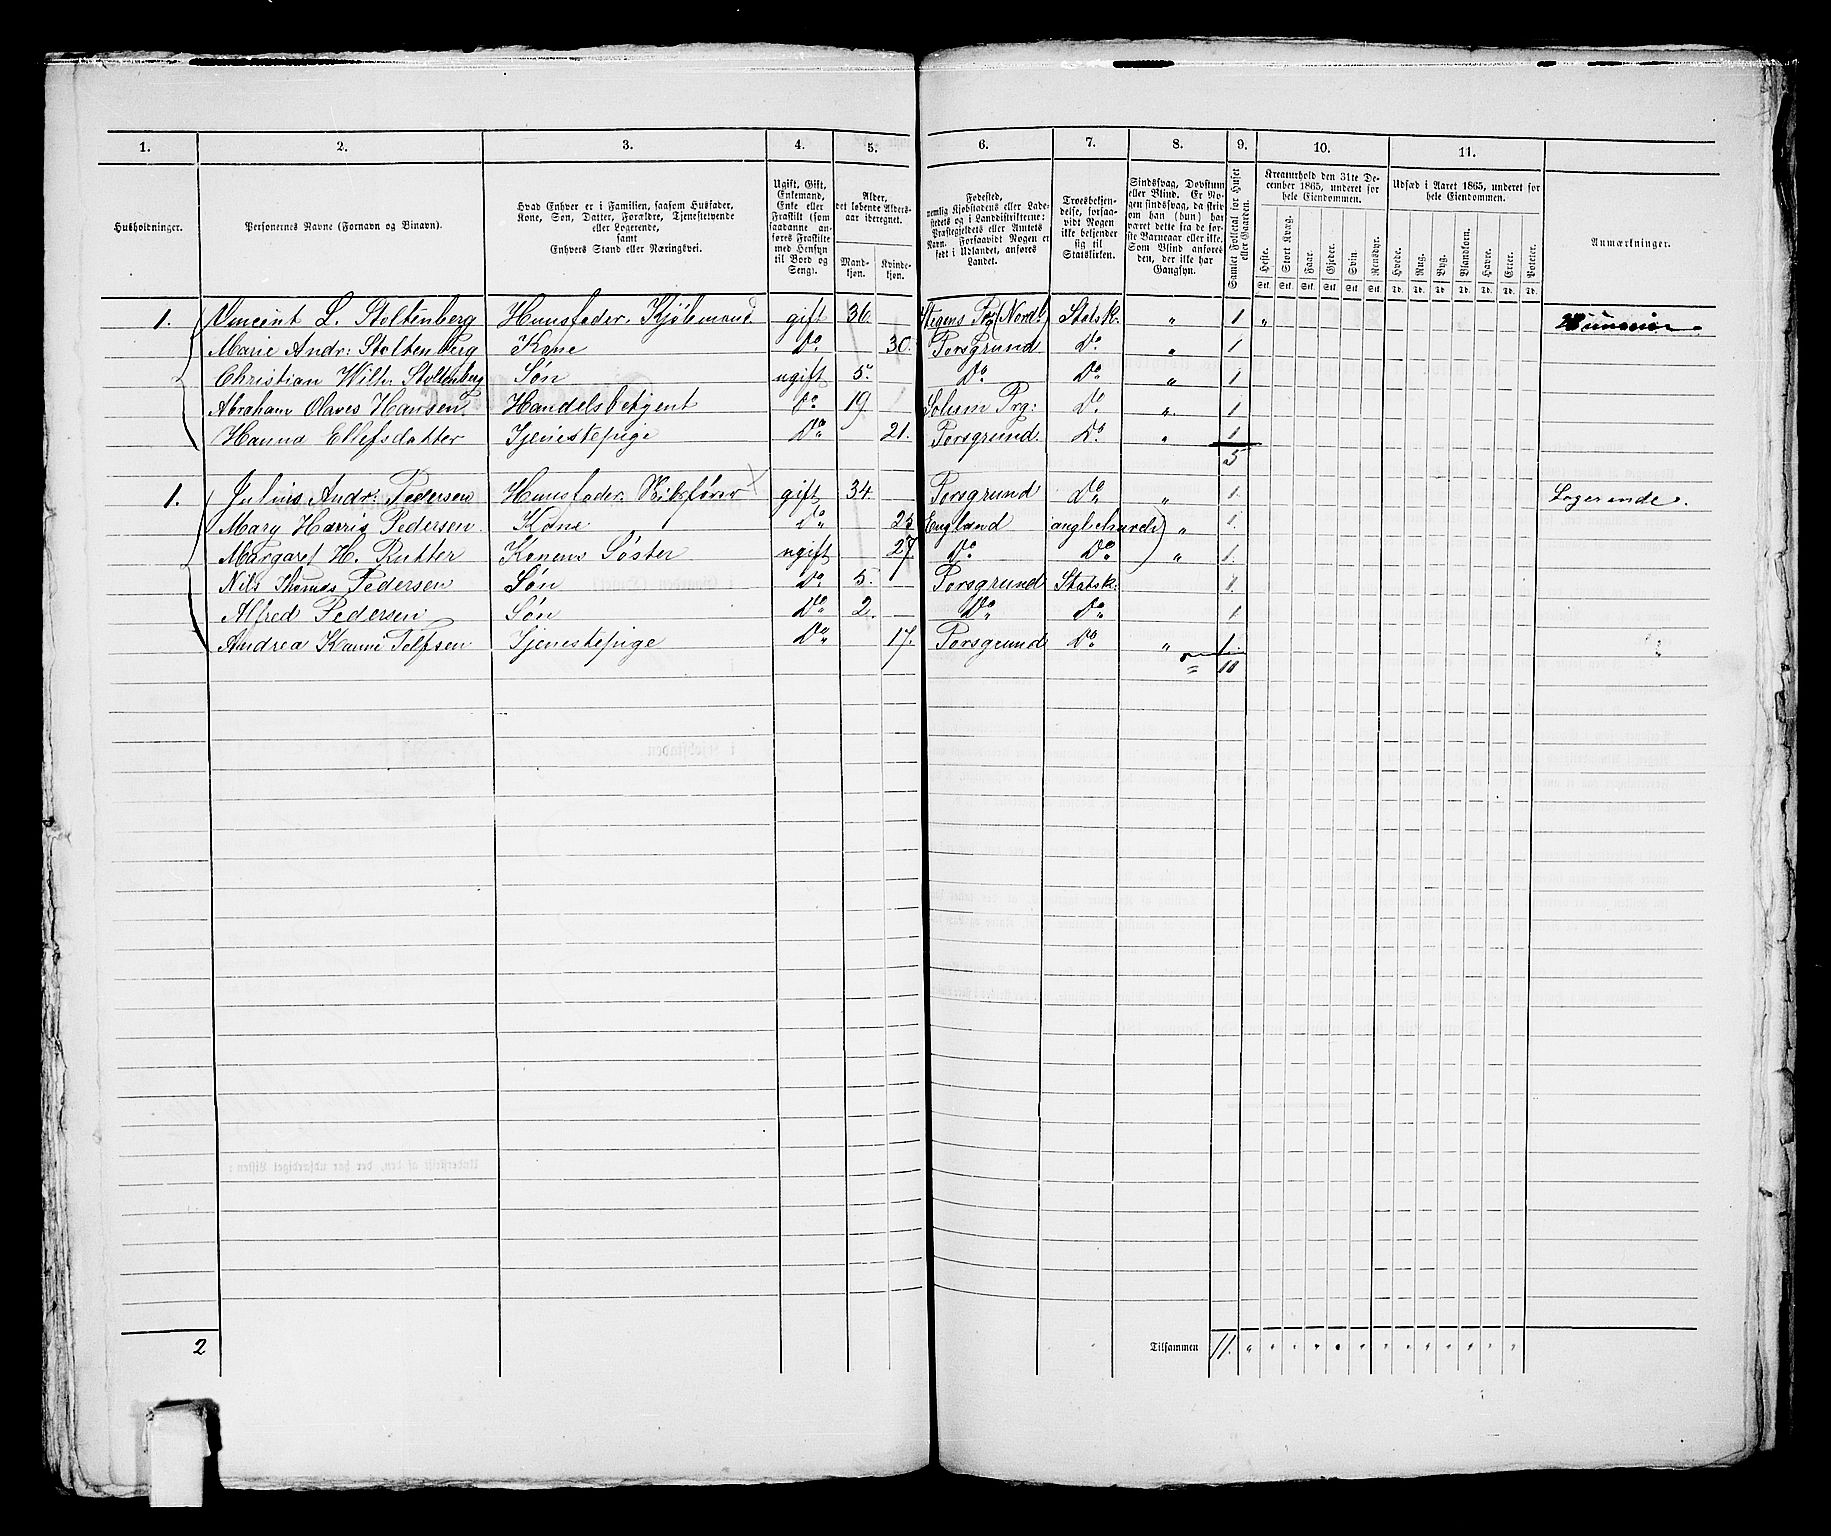 1. 2. 3. 4. 5. 6. 7. 8. 9. 10. 11.
Husholdninger.
Personernes Navne (Fornavn og Binavn).
Hvad Enhver er i Familien, saasom Husfader,
Kone, Søn, Datter, Forældre, Tjenestetyende
eller Logerende,
samt
Enhvers Stand eller Næringsvei.
Ugift, Gift,
Enkemand,
Enke eller
Fraskilt (som
saadanne an-
føres Fraskilte
med Hensyn
til Bord og
Seng).
Alder,
det løbende Alders-
aar iberegnet.
Mand-
kjøn.
Kvinde-
kjøn.
Fødested,
nemlig Kjøbstadens eller Lade-
stedets og i Landdistrikterne:
Præstegjeldets eller Amtets
Navn. Forsaavidt Nogen er
født i Udlandet, anføres
Landet.
Troesbekjen-
delse, forsaa-
vidt Nogen
ikke bekjender
sig til
Statskirken.
Sindssvag, Døvstum
eller Blind. Er No-
gen sindssvag, da skriv
om han (hun) har
været dette fra de før-
ste Barneaar eller ikke.
Som Blind anføres
den, der ikke har
Gangsyn.
Samlet Folketal for Huset
eller Gaarden.
Kreaturhold den 31te De-
cember 1865, underet for
hele Eiendommen.
Heste. Stort Kvæg. Faar. Gjeder. Svin. Rensdyr.
Stk. Stk. Stk. Stk. Stk. Stk.
Udsæd i Aaret 1865, underet for
hele Eiendommen.
Hvede. Rug. Byg. Blandkorn. Havre. Erter. Poteter.
Td. Td. Td. Td. Td. Td. Td.
Anmærkninger.
1. Vincent L. Stoltenberg Huusfader. Kjøbmand gift 36. Stegens Prg (Nordl) Statsk. " 1 "
Marie Andr: Stoltenberg Kone Do 30. Porsgrund Do " 1
Christian Wilh: Stoltenberg Søn ugift 5. Do Do " 1
Abraham Olaves Hansen Handelsbetjent Do 19. Solum Prg: Do " 1
Hanna Ellefsdatter Tjenestepige Do 21. Porsgrund. Do " 1
5
1. Julius Andr: Pedersen Huusfader. Skibsfører gift 34. Porsgrund Do " 1. Logerende.
Mary Harris Pedersen. Kone Do 25 England " 1.
Margaret H. Rutter Konens Søster ugift 27. Do Do " 1.
Nils Thomas Pedersen Søn Do 5. Porsgrund Statsk: 1.
Alfred Pedersen Søn Do 2. Do Do 1
Andrea Kanne Tolfsen Tjenestepige Do 17. Porsgrund Do " 1.
= 11
2 Tilsammen 11. " " " " " " " " " " " " "